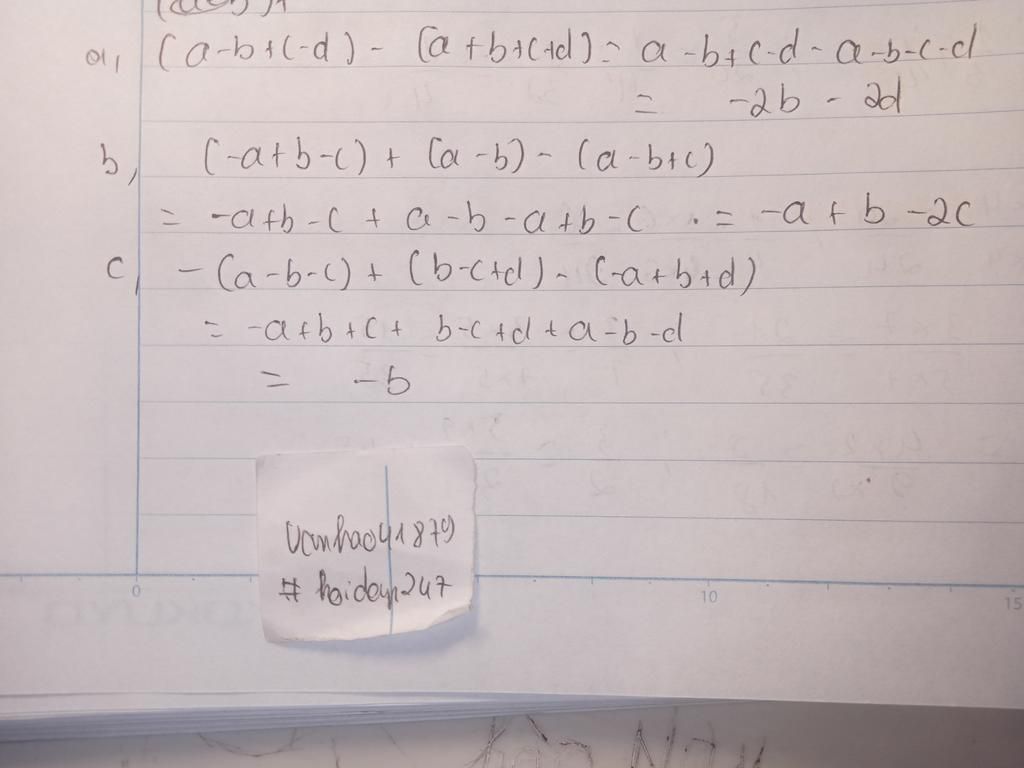 a, (a-b+c-d) - (a+b+c+d) = a-b+c-d-a-b-c-d
= -2b - 2d
b, (-a+b-c) + (a-b) - (a-b+c)
= -a+b-c + a-b-a+b-c . = -a+b-2c
c, -(a-b-c) + (b-c+d) - (-a+b+d)
= -a+b+c+ b-c+d+a-b-d
= -b
vanhao41879
# hoidap247
0 10 15